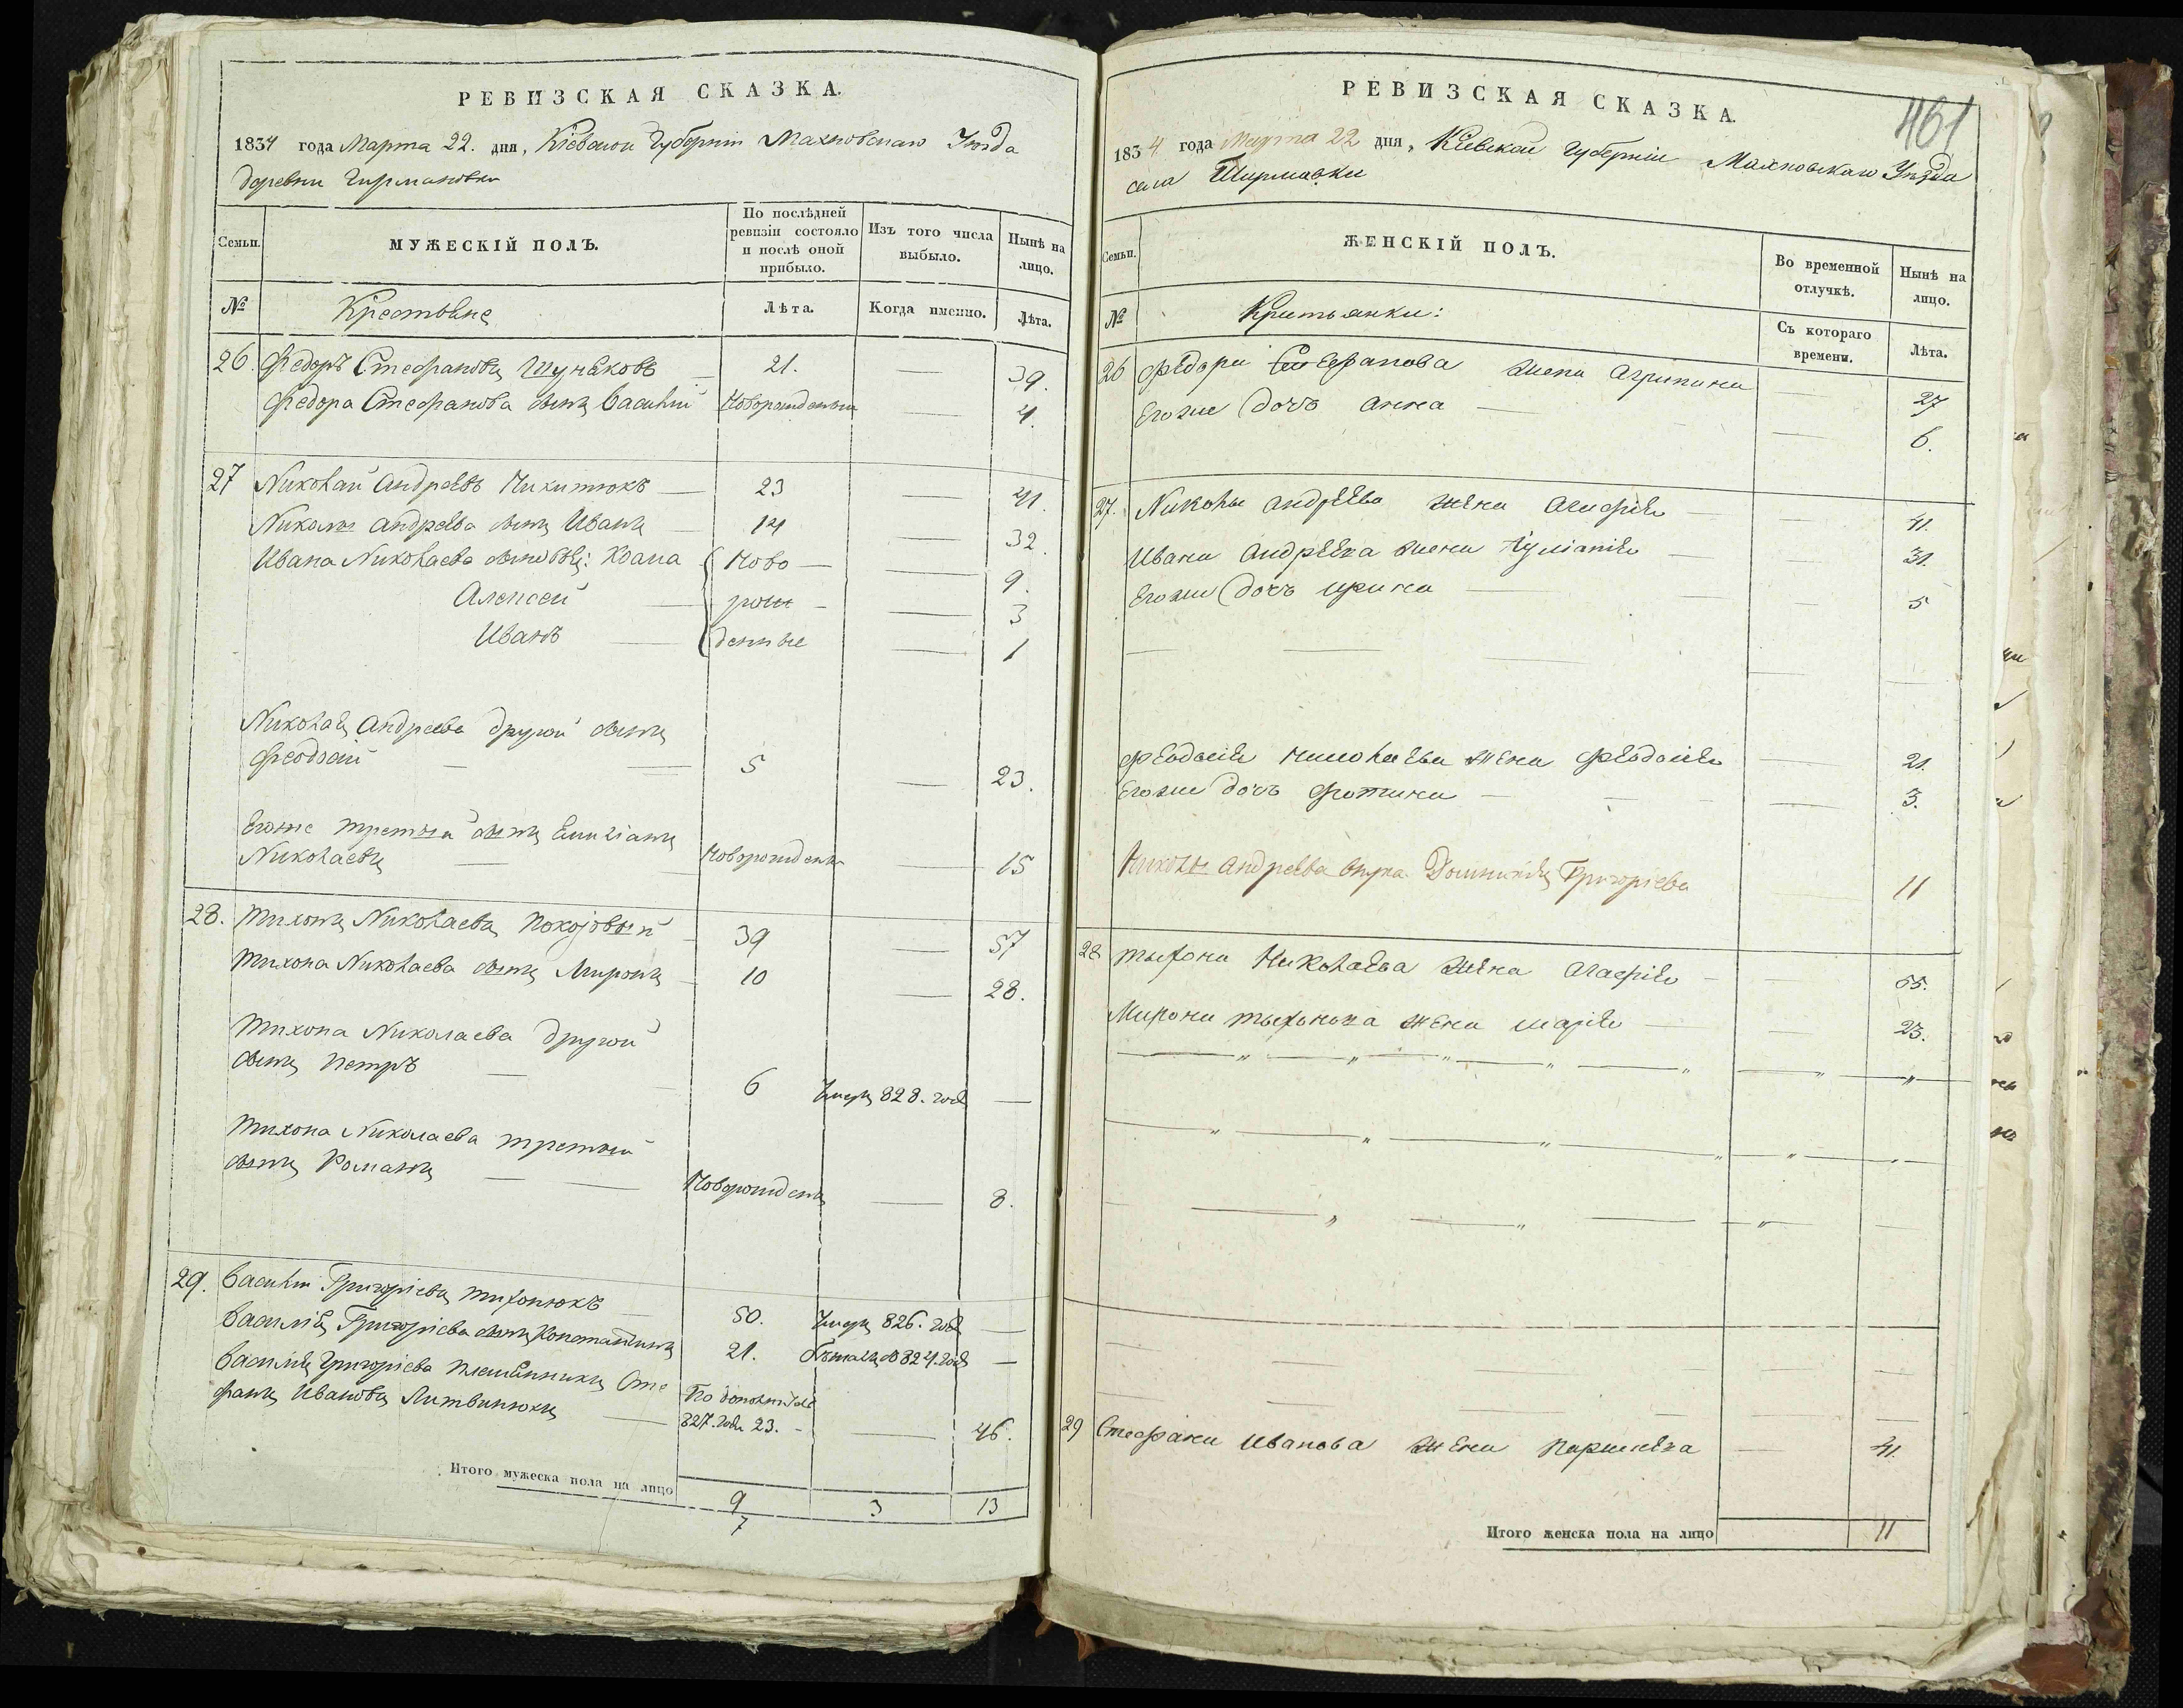 РЕВИЗСКАЯ СКАЗКА.
1834 года Марта 22. дня, Кіевской Губерніи Махновскаго Уезда
деревни
Семьи.
МУЖЕСКІЙ ПОЛЪ.
По послѣдней ревизіи состояло и послѣ оной прибыло.
Изъ того числа выбыло.
Нынѣ на лицо.
№
Крестьяне
Лѣта.
Когда именно.
Лѣта.
26. Федоръ Стефановъ — 21. — 39.
Федора Стефанова сынъ Василій Новорожденный — 4.
27 Николай Андреевъ Никитюкъ — 23 — 41.
Николы Андреева сынъ Иванъ — 14 — 32.
Ивана Николаева сыновья: Козма Ново — 9.
Алексей — рож — 3
Иванъ — денные — 1
Николая Андреева другой сынъ
Феодосій — — 5 — 23.
Егоже третый сынъ Емиліанъ
Николаевъ — Новорожденъ — 15
28. Тихонъ Николаевъ Покоjовый — 39 — 57
Тихона Николаева сынъ Миронъ — 10 — 28.
Тихона Николаева другой
сынъ Петръ — 6 Умеръ 828. года —
Тихона Николаева третый
сынъ Романъ — — Новорожденъ — 8.
29. Василій Григоріевъ Тихонюкъ — 50. Умеръ 826. года —
Василія Григоріева сынъ Константинъ 21. Бѣжалъ в 824. годѣ —
Василія Григоріева племянникъ Сте
фанъ Ивановъ Литвинюкъ — По дополнит.
827. года 23. — — 46.
Итого мужеска пола на лицо 9 3 13
7
461
РЕВИЗСКАЯ СКАЗКА.
1834 года Марта 22 дня, Кіевской Губерніи Махновскаго Уѣзда
села Ширмовки
Семьи.
ЖЕНСКІЙ ПОЛЪ.
Во временной отлучкѣ.
Нынѣ на лицо.
№
Крестьянки:
Съ котораго времени.
Лѣта.
26 Федора Стефанова жена Агрипина — 27
Егоже дочь Анна — — 6.
27. Николы Андреева жена Агафія — — 41.
Ивана Андреева жена — — 31.
Егоже дочь Ирина — — — 5
Феодосія Николаева жена Феодосія — 21.
Егоже дочь Фотина — — — 3.
Николы Андреева внука Григоріева 11
28 Тыхона Николаева жена Агафія — — 55.
Мирона Тыхонова жена Марія — — 23.
29 Стефана Иванова жена — 41.
Итого женска пола на лицо 11